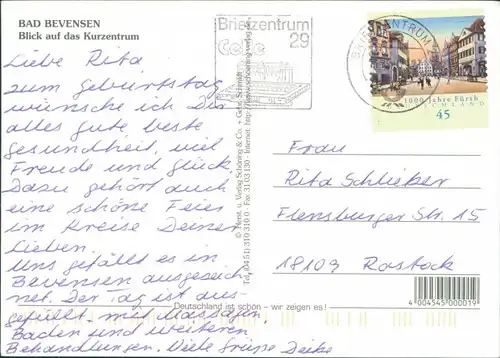 BAD BEVENSEN
Blick auf das Kurzentrum
Liebe Rita
zum Geburtstag
wünsche ich Dir
alles gute beste
gesundheit, viel
Freude und Glück.
Dazu gehört auch
eine schöne Feier
im Kreise Deiner
Lieben.
Uns gefällt es in
Bevensen ausgezeich
net. Der Tag ist aus-
gefüllt mit Massagen,
Baden und weiteren
Behandlungen. Viele Grüße Deike
Briefzentrum
Celle
29
BRIEFZENTRUM
1000 Jahre Fürth
DEUTSCHLAND
45
© Herst. u. Verlag Schöning & Co. + Gebr. Schmidt
Tel. (04 51) 310 310 0 · Fax 31 03 130 · Internet: http://www.schoening-verlag.de
Frau
Rita Schlieker
Flensburger Str. 15
18109 Rostock
Deutschland ist schön – wir zeigen es!
4 004545 000019